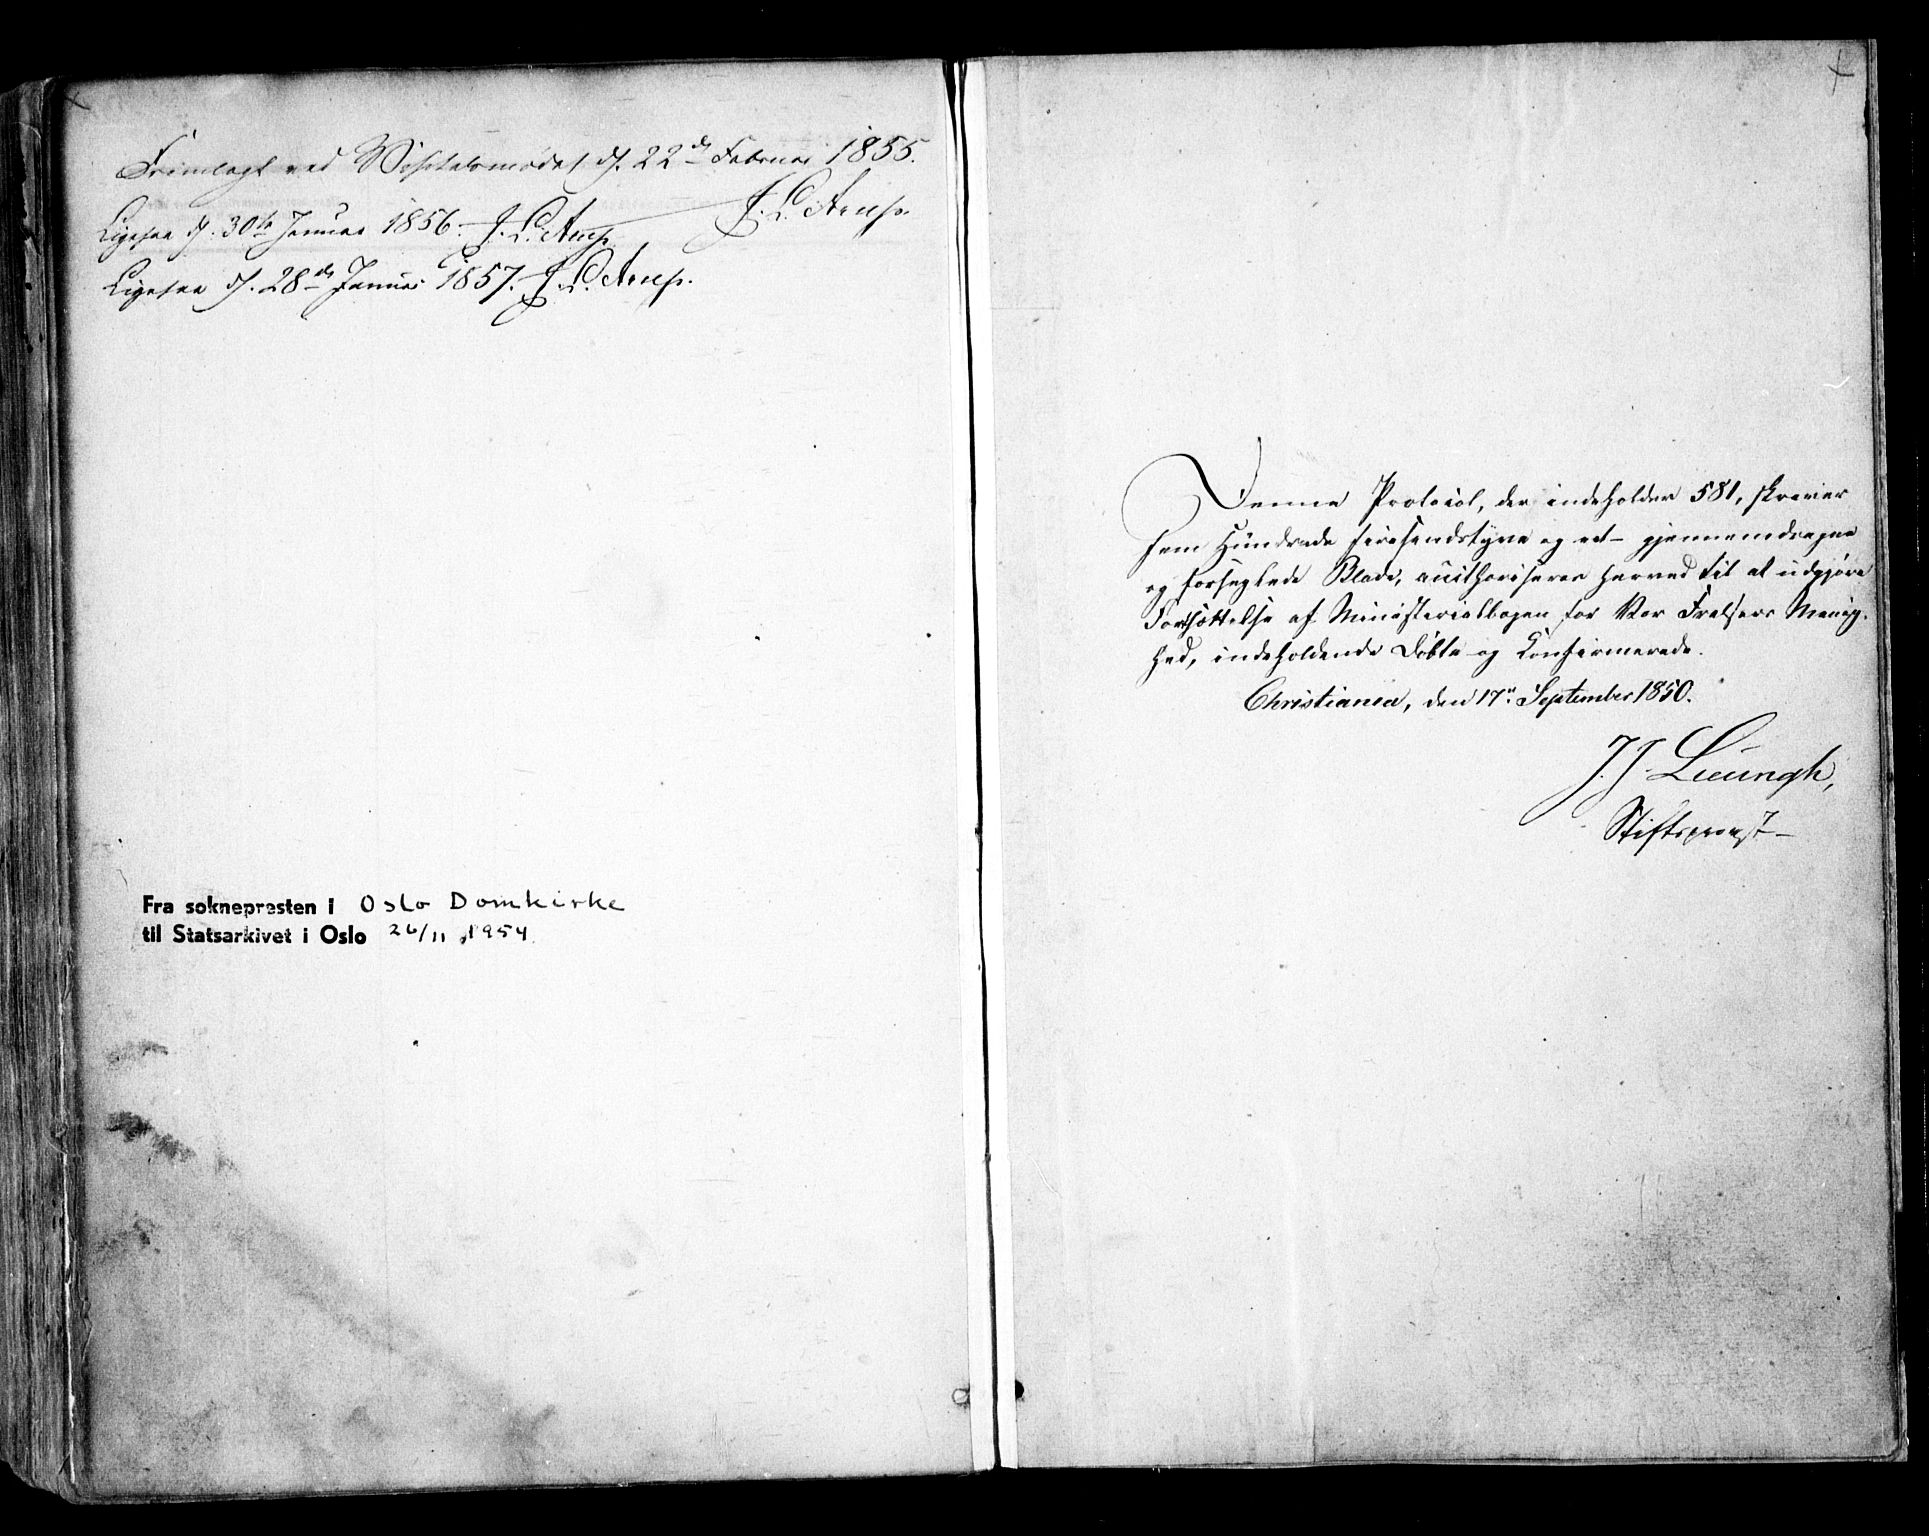 Fremlagt ved Visitatsmødet d. 22de Februar 1855.
J. L. Arup.
Ligesaa d. 30te Januar 1856. J. L. Arup.
Ligesaa d. 28de Januar 1857. J. L. Arup.
Fra soknepresten i Oslo Domkirke
til Statsarkivet i Oslo 26/11 1954.
Denne Protocol, der indeholder 581, skriver
fem Hundrede fiirsindstyve og et – gjennemdragne
og forseglede Blade, authoriseres herved til at udgjøre
Fortsættelse af Ministerialbogen for Vor Frelsers Menig-
hed, indeholdende Døbte og Konfirmerede.
Christiania, den 17de September 1850.
J. J. Lieungh,
Stiftsprovst